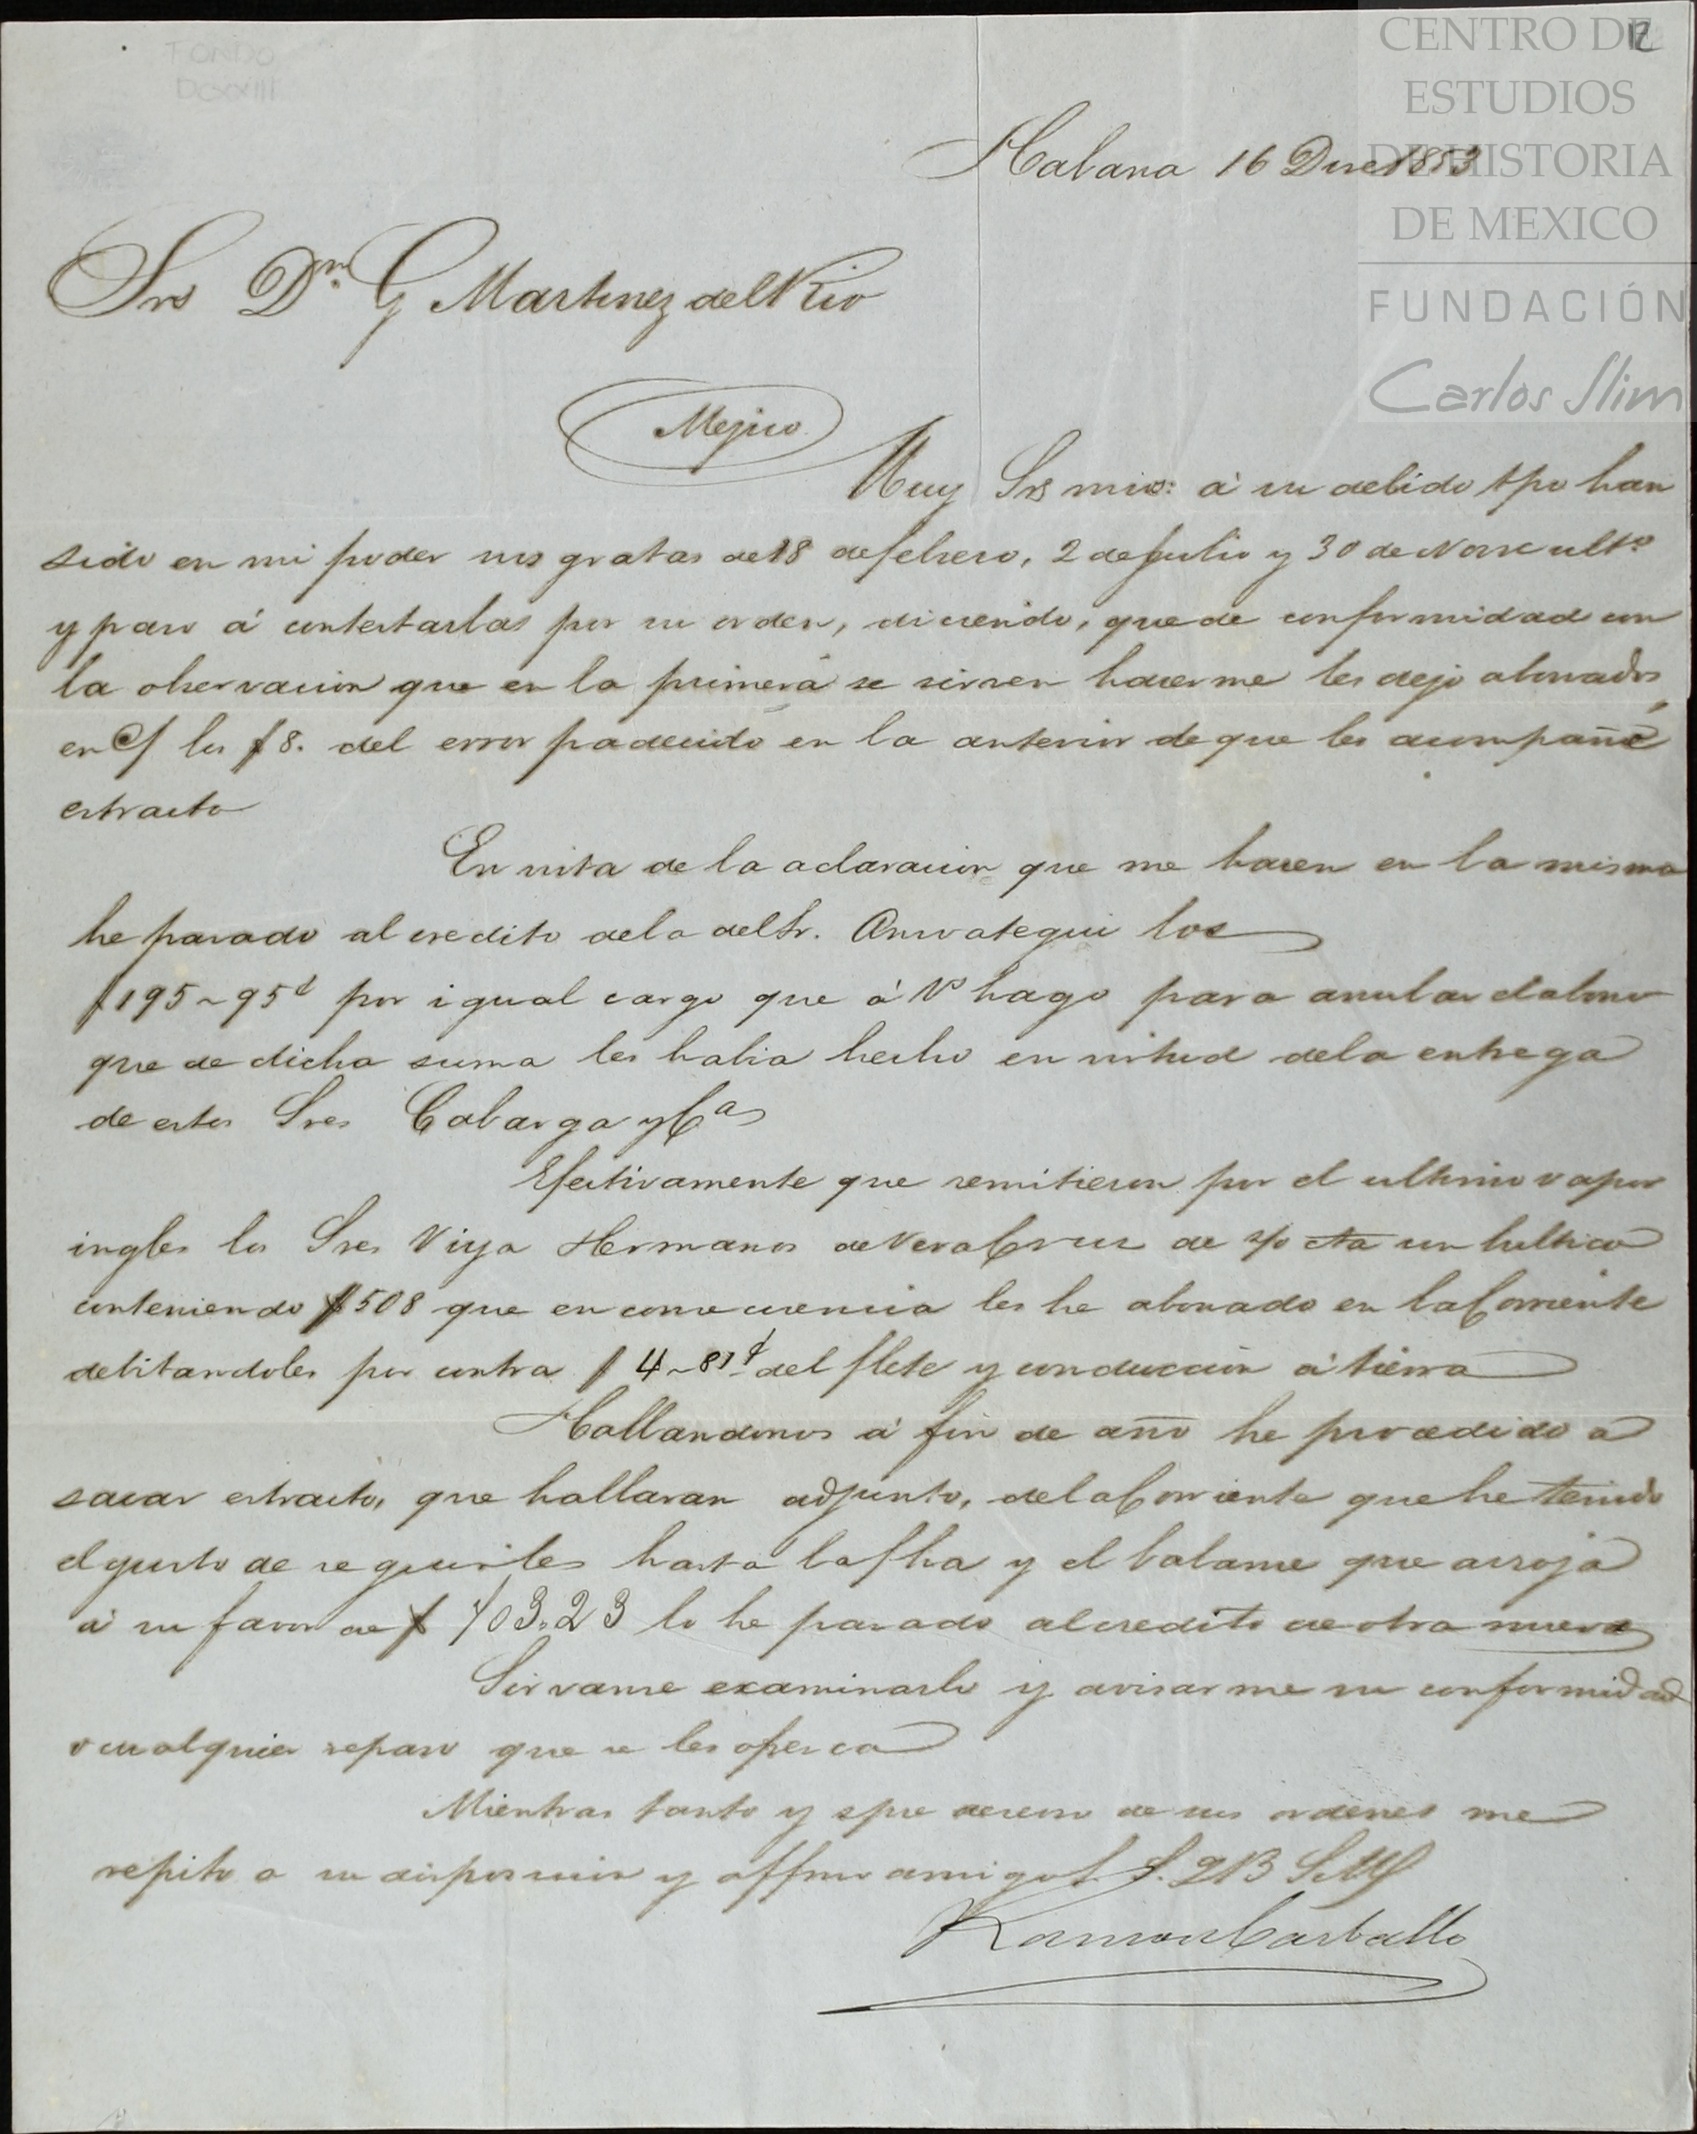 FONDO
DCXXIII
12
CENTRO DE
ESTUDIOS
DE HISTORIA
DE MEXICO
FUNDACIÓN
Carlos Slim
Habana 16 Dice 1853
Srs Dn. G Martinez del Rio
Mejico
Muy Srs mios: á su debido tpo han
sido en mi poder sus gratas de 18 de febrero, 2 de Julio y 30 de Nove ulto
y paso á contestarlas por su orden, diciendo, que de conformidad con
la observacion que en la primera se sirven hacerme les dejo abonados
en C/ los $8. del error padecido en la anterior de que les acompañé
estracto
En vista de la aclaracion que me hacen en la misma
he pasado al credito dela del Sr. Ansoategui los
$195~95c por igual cargo que á Vs hago para anular el abono
que de dicha suma les habia hecho en virtud dela entrega
de estos Sres Cabarga y Ca
Efectivamente que remitieron por el ultimo vapor
ingles los Sres Viya Hermanos de Vera Cruz de s/o cta un bultico
conteniendo $508 que en consecuencia les he abonado en la Corriente
debitandoles por contra $ 4~87c del flete y conduccion á tierra
Hallandonos á fin de año he procedido a
sacar estracto, que hallaran adjunto, dela Corriente que he tenido
el gusto de seguirles hasta la fha y el balance que arroja
á su favor de $ 703.23 lo he pasado al credito de otra nueva
Sirvanse examinarlo y avisarme su conformidad
o cualquier reparo que se les ofresca
Mientras tanto y spre deseoso de sus ordenes me
repito a su disposicion y affmo amigo S. S. Q B S M
Ramon Carballo